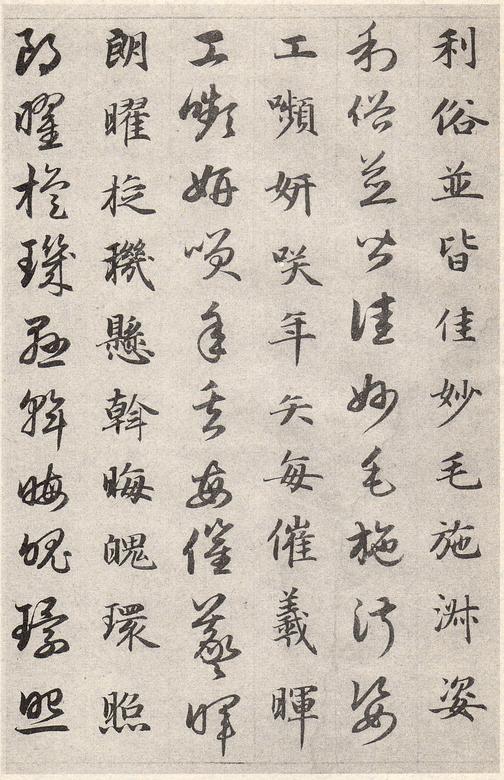 利俗並皆佳妙毛施淋姿
利俗並皆佳妙毛施淑姿
工嚬妍咲年矢每催羲暉
工嚬妍咲年矢每催羲暉
朗曜㫌機懸斡晦魄環照
朗曜㫌機懸斡晦魄環照